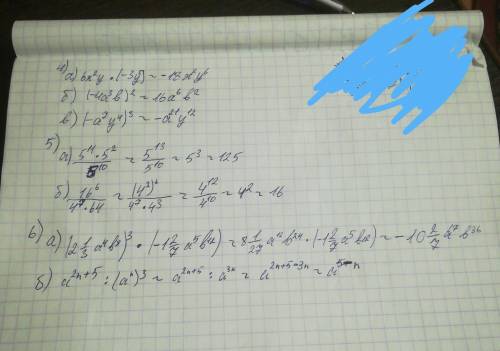 4) а) 6x²y · (-3y⁵) = -18x²y⁶
б) (-4a³b)² = 16a⁶b²
в) (-a⁷y⁴)³ = -a²¹y¹²
5) а) 5¹¹ · 5² / 5¹⁰ = 5¹³ / 5¹⁰ = 5³ = 125
б) 16⁶ / 4⁷ · 64 = (4²)⁶ / 4⁷ · 4³ = 4¹² / 4¹⁰ = 4² = 16
6) а) (2 1/3 a⁴b⁸)³ · (-1 2/7 a⁵b¹²) = 8 1/27 a¹²b²⁴ · (-1 2/7 a⁵b¹²) = -10 2/7 a⁷b³⁶
б) a²ⁿ⁺⁵ : (aⁿ)³ = a²ⁿ⁺⁵ : a³ⁿ = a²ⁿ⁺⁵⁻³ⁿ = a⁵⁻ⁿ